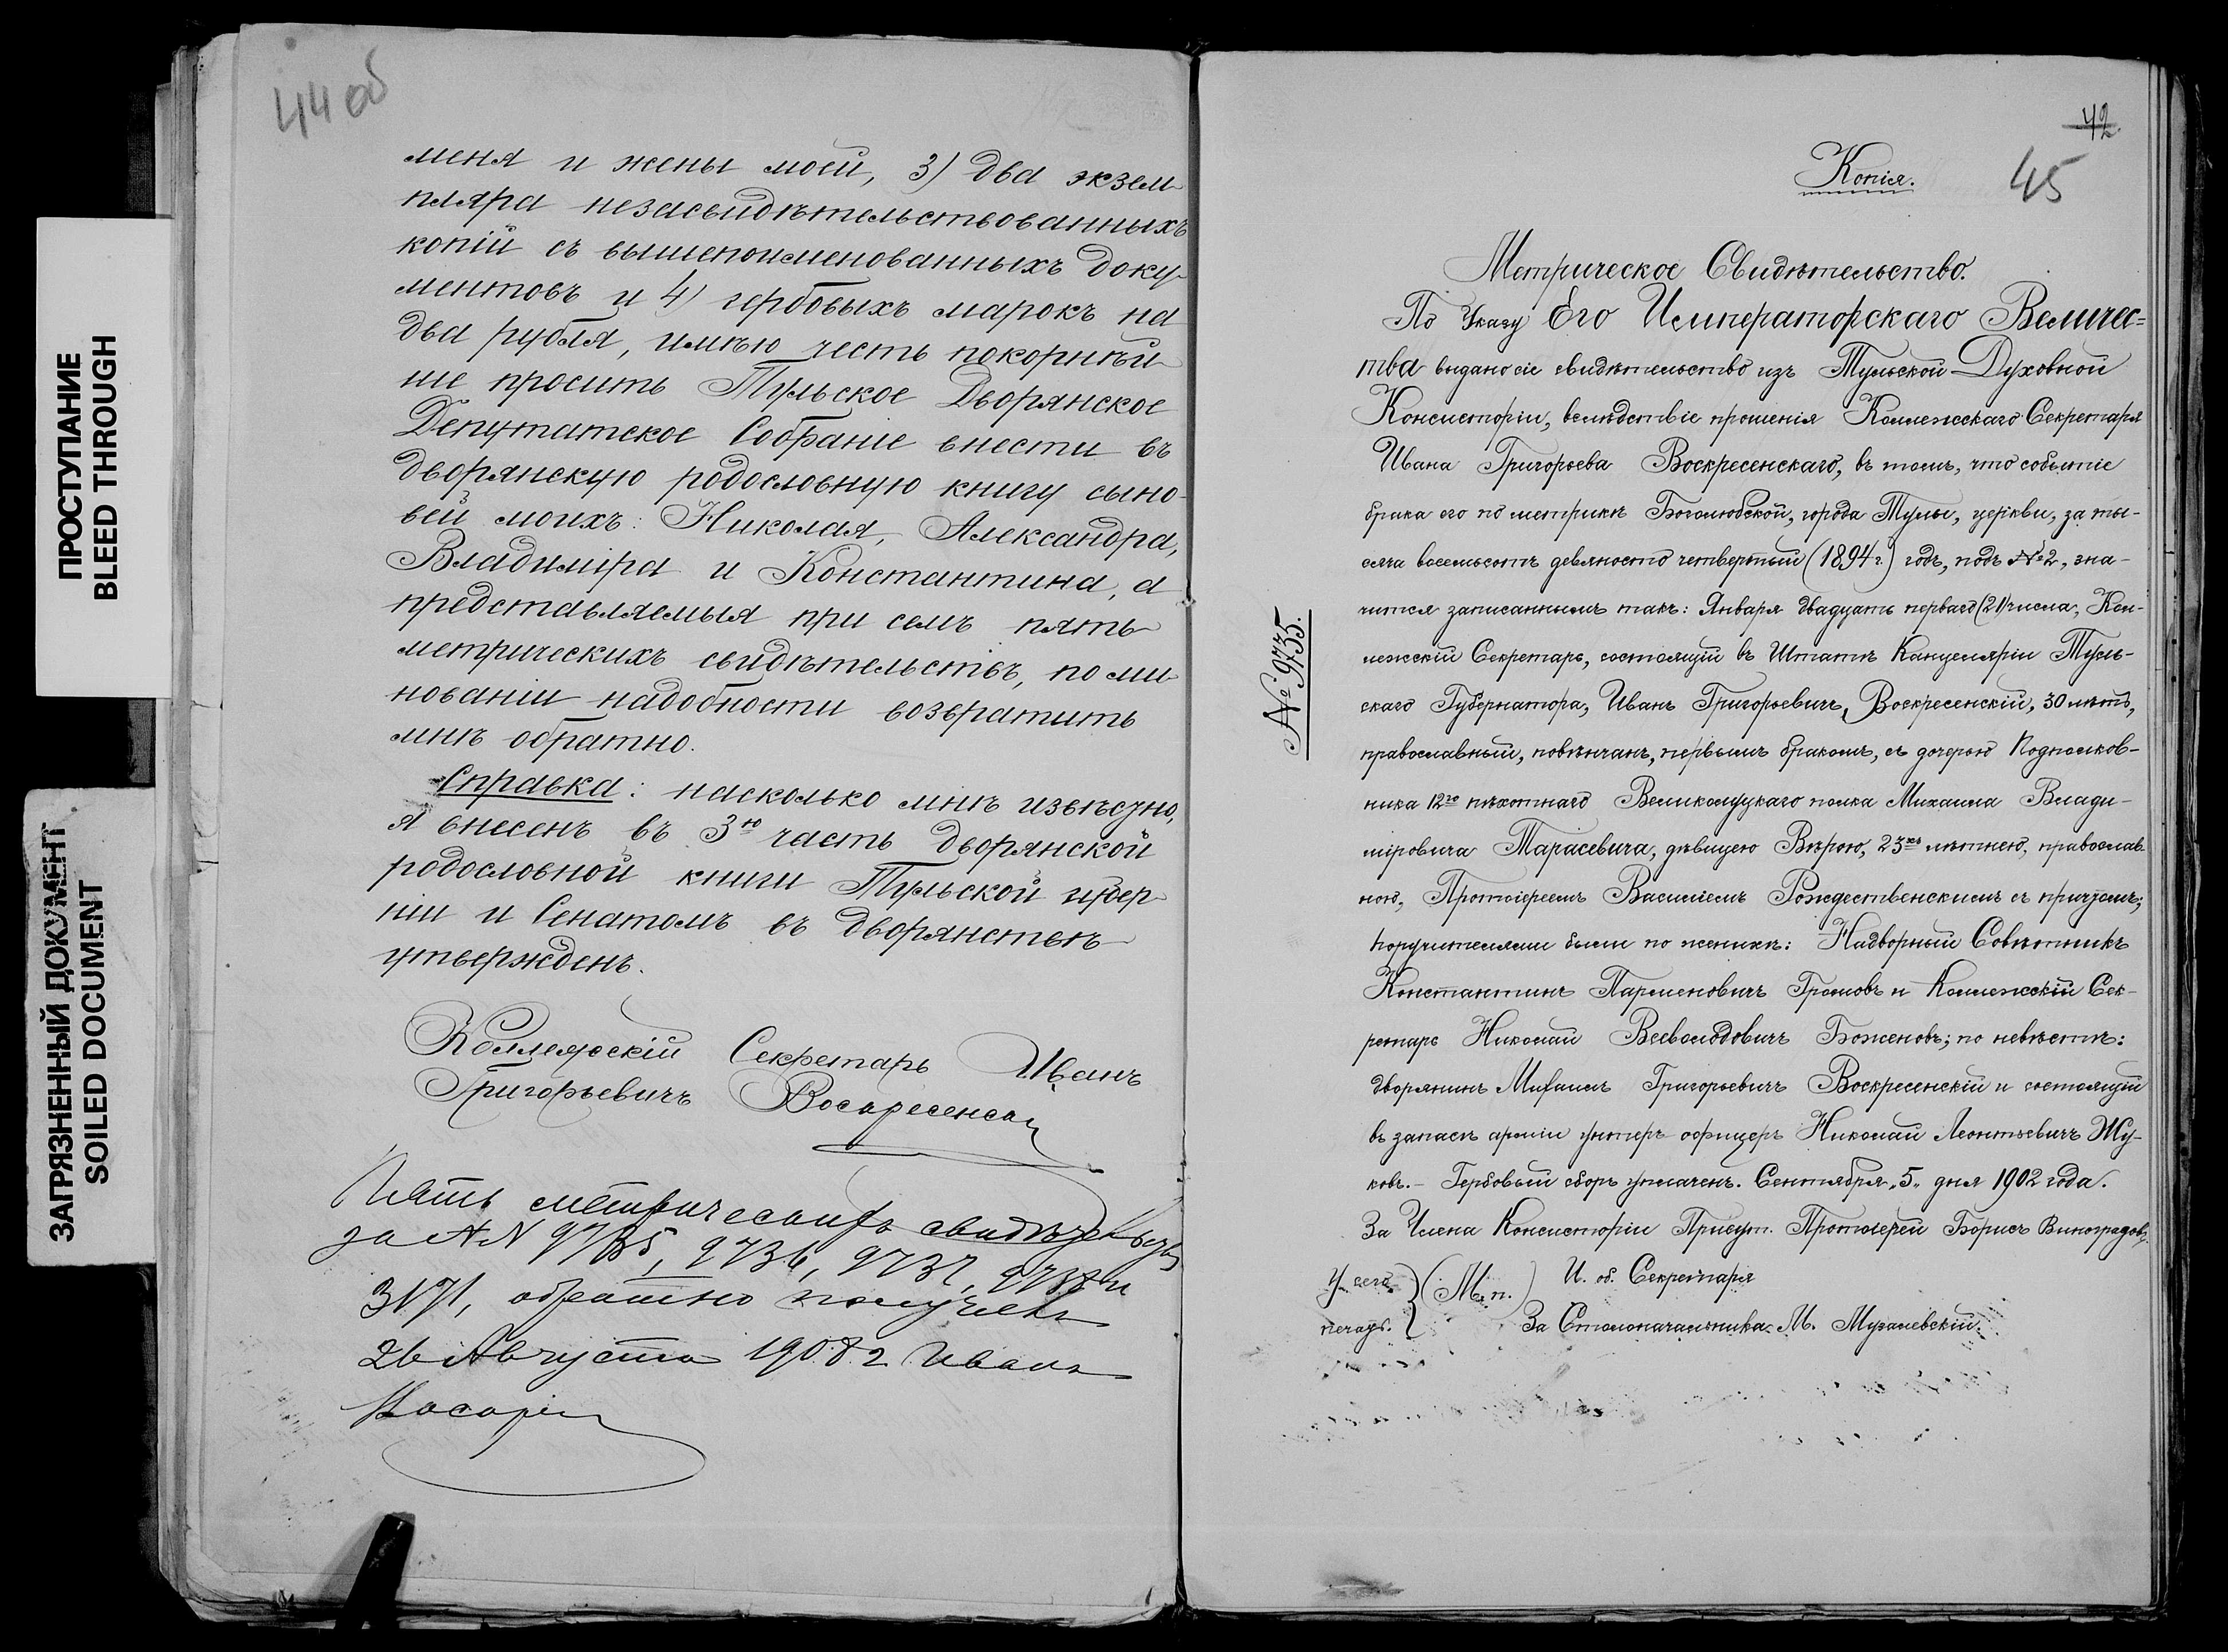 ПРОСТУПАНИЕ
BLEED THROUGH
ЗАГРЯЗНЕННЫЙ ДОКУМЕНТ
SOILED DOCUMENT
44 об
меня и жены моей, 3) два экзем-
пляра незасвидѣтельствованныхъ
копій съ вышепоименованныхъ доку-
ментовъ и 4) гербовыхъ марокъ на
два рубля, имѣю честь покорнѣй-
ше просить Тульское Дворянское
Депутатское Собраніе внести въ
дворянскую родословную книгу сыно-
вей моихъ: Николая, Александра,
Владиміра и Константина, а
представляемыя при семъ пять
метрическихъ свидѣтельствъ, по ми-
нованіи надобности возвратить
мнѣ обратно.
Справка: насколько мнѣ извѣстно,
я внесенъ въ 3ю часть дворянской
родословной книги Тульской губер-
ніи и Сенатомъ въ дворянствѣ
утвержденъ.
Коллежскій Секретарь Иванъ
Григорьевичъ Воскресенскій
Пять метрическихъ свидѣтельствъ
за №№ 9735, 9736, 9737, 9738 и
3171, обратно получилъ
26 Августа 1908 г. Иванъ
42
45
Копія.
Метрическое Свидѣтельство.
По Указу Его Императорскаго Величес=
тва выдано сіе свидѣтельство изъ Тульской Духовной
Консисторіи, вслѣдствіе прошенія Коллежскаго Секретаря
Ивана Григорьева Воскресенскаго, въ томъ, что событіе
брака его по метрикѣ Боголюбской, города Тулы, церкви, за ты-
сяча восемьсотъ девяносто четвертый (1894 г.) годъ, подъ № 2, зна-
чится записаннымъ такъ: Января двадцать перваго (21) числа, Кол-
лежскій Секретарь, состоящій въ Штатѣ Канцеляріи Туль-
скаго Губернатора, Иванъ Григорьевичъ, Воскресенскій, 30 лѣтъ,
православный, повѣнчанъ, первымъ бракомъ, съ дочерью Подполков-
ника 12го пѣхотнаго Великолуцкаго полка Михаила Влади-
міровича Тарасевича, дѣвицею Вѣрою, 23хъ лѣтнею, православ-
ною, Протоіереемъ Василіемъ Рождественскимъ съ причтомъ;
поручителями были по женихѣ: Надворный Совѣтникъ
Константинъ Парменовичъ Громовъ и Коллежскій Сек-
ретарь Николай Всеволодовичъ Боженовъ; по невѣстѣ:
дворянинъ Михаилъ Григорьевичъ Воскресенскій и состоящій
въ запасѣ арміи унтеръ-офицеръ Николай Леонтьевичъ Жу-
ковъ. – Гербовый сборъ уплаченъ. Сентября „5„ дня 1902 года.
За Члена Консисторіи Присут. Протоіерей Борисъ Виноградовъ.
У сего печать. (М. п.) И. об. Секретаря
За Столоначальника М.
№ 9735.